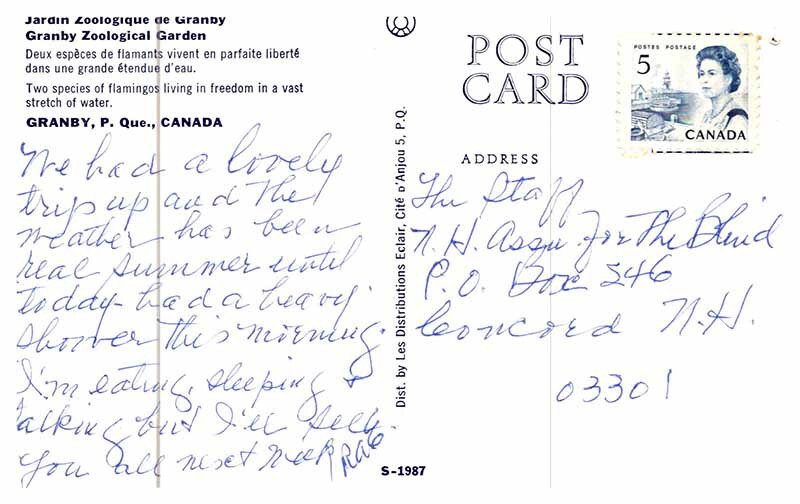 Jardin Zoologique de Granby
Granby Zoological Garden
Deux espèces de flamants vivent en parfaite liberté
dans une grande étendue d'eau.
Two species of flamingos living in freedom in a vast
stretch of water.
GRANBY, P. Que., CANADA
We had a lovely
trip up and the
weather has been
real summer until
today - had a heavy
shower this morning.
I'm eating, sleeping &
talking but I'll see
you all next week
Dist. by Les Distributions Eclair, Cité d'Anjou 5, P.Q.
S-1987
POST
CARD
POSTES POSTAGE
5
CANADA
ADDRESS
The Staff
N.H. Assn. for The Blind
P.O. Box 246
Concord N.H.
03301